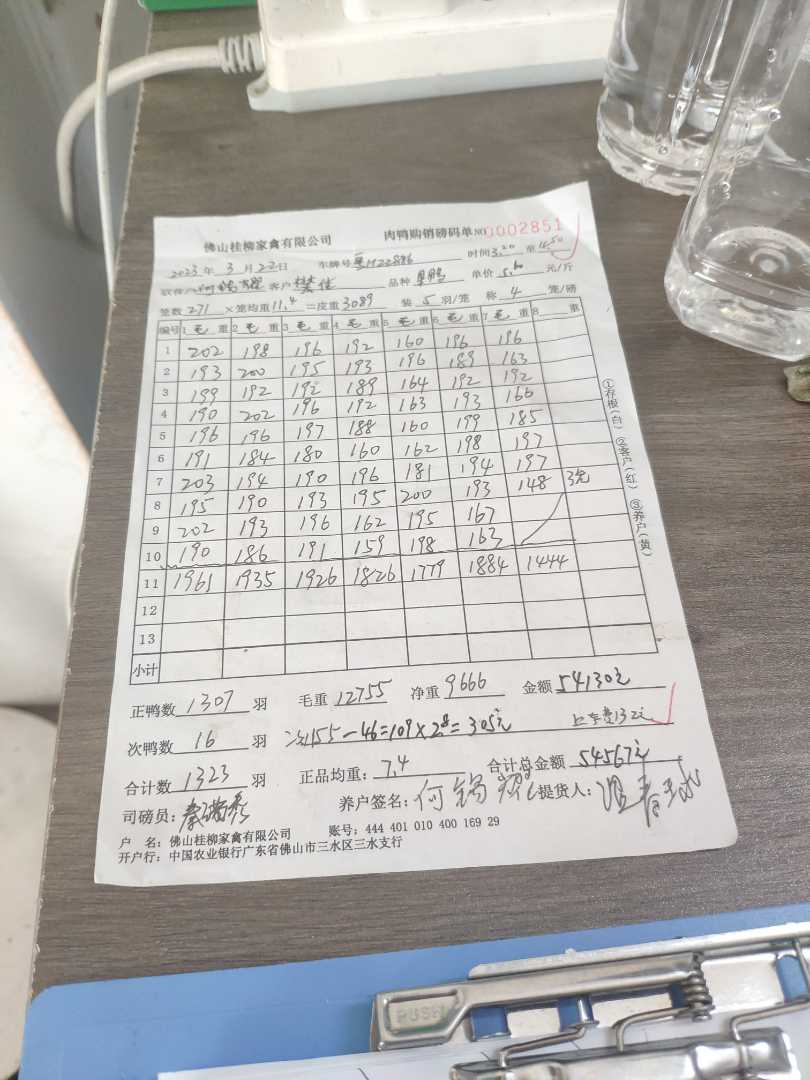 佛山桂柳家禽有限公司 肉鸭购销磅码单 NO 0002851
2023年 3月 22日 车牌号 粤H22886 时间 3.20 至 4.50
客户 樊佳 品种 单价 5.60 元/斤
笼数 271 ×笼均重 11.4 =皮重 3089 装 5 羽/笼 称 4 笼/磅
编号 1 毛 重 2 毛 重 3 毛 重 4 毛 重 5 毛 重 6 毛 重 7 毛 重 8 重
1 202 198 196 192 160 196 196
2 193 200 195 193 196 189 163
3 199 192 192 189 164 192 192
4 190 202 196 192 163 193 166
5 196 196 197 188 160 199 185
6 191 184 180 160 162 198 197
7 203 194 190 196 181 194 197
8 195 190 193 195 200 193 148 3笼
9 202 193 196 162 195 167
10 190 186 191 159 198 163
11 1961 1935 1926 1826 1779 1884 1444
12
13
小计
①存根(白) ②客户(红) ③养户(黄)
正鸭数 1307 羽 毛重 12755 净重 9666 金额 54130元
次鸭数 16 羽 次155-46=109×2.8=305元 上车费132元
合计数 1323 羽 正品均重: 7.4 合计总金额 54567元
司磅员: 养户签名: 何 提货人:
户 名: 佛山桂柳家禽有限公司 账号: 444 401 010 400 169 29
开户行: 中国农业银行广东省佛山市三水区三水支行
PUSH